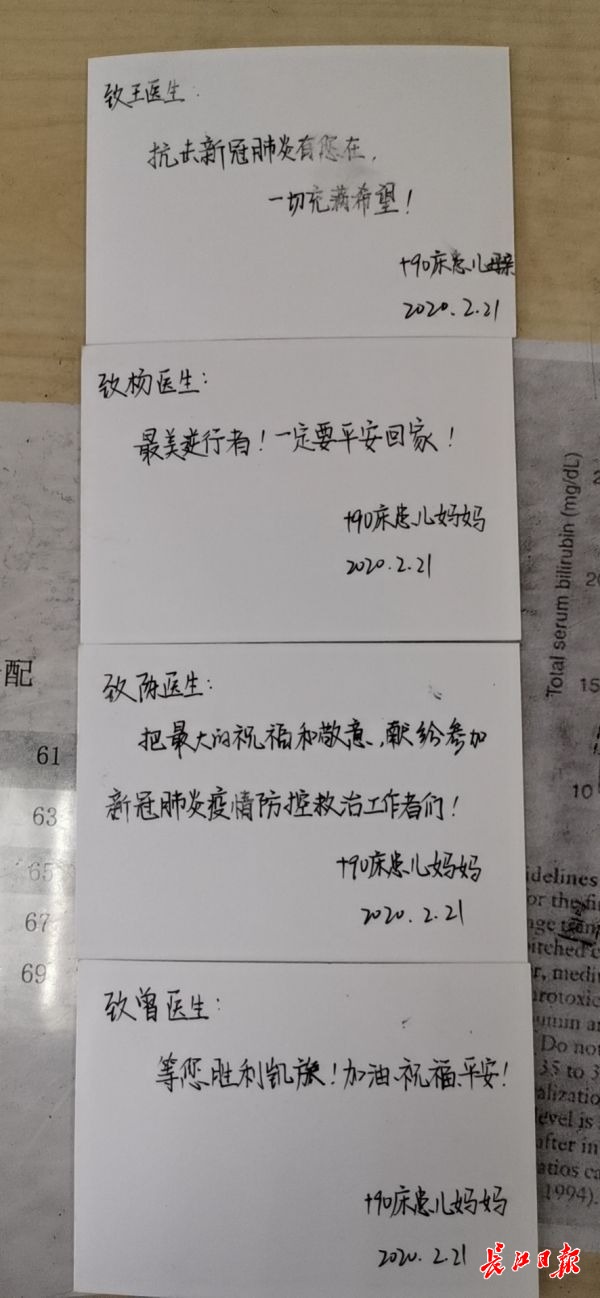 致王医生：
抗击新冠肺炎有您在，
一切充满希望！
+90床患儿母亲
2020.2.21
致杨医生：
最美逆行者！一定要平安回家！
+90床患儿妈妈
2020.2.21
致陈医生：
把最大的祝福和敬意，献给参加
新冠肺炎疫情防控救治工作者们！
+90床患儿妈妈
2020.2.21
致曾医生：
等您胜利凯旋！加油、祝福、平安！
+90床患儿妈妈
2020.2.21
配
61
63
65
67
69
Total serum bilirubin (mg/dL)
20
15
10
idelines
or the fi
nge tran
pitched c
r, medi
urotoxic
umin an
Do not
35 to 3
alizatio
level is
after in
atios ca
1994).
长江日报